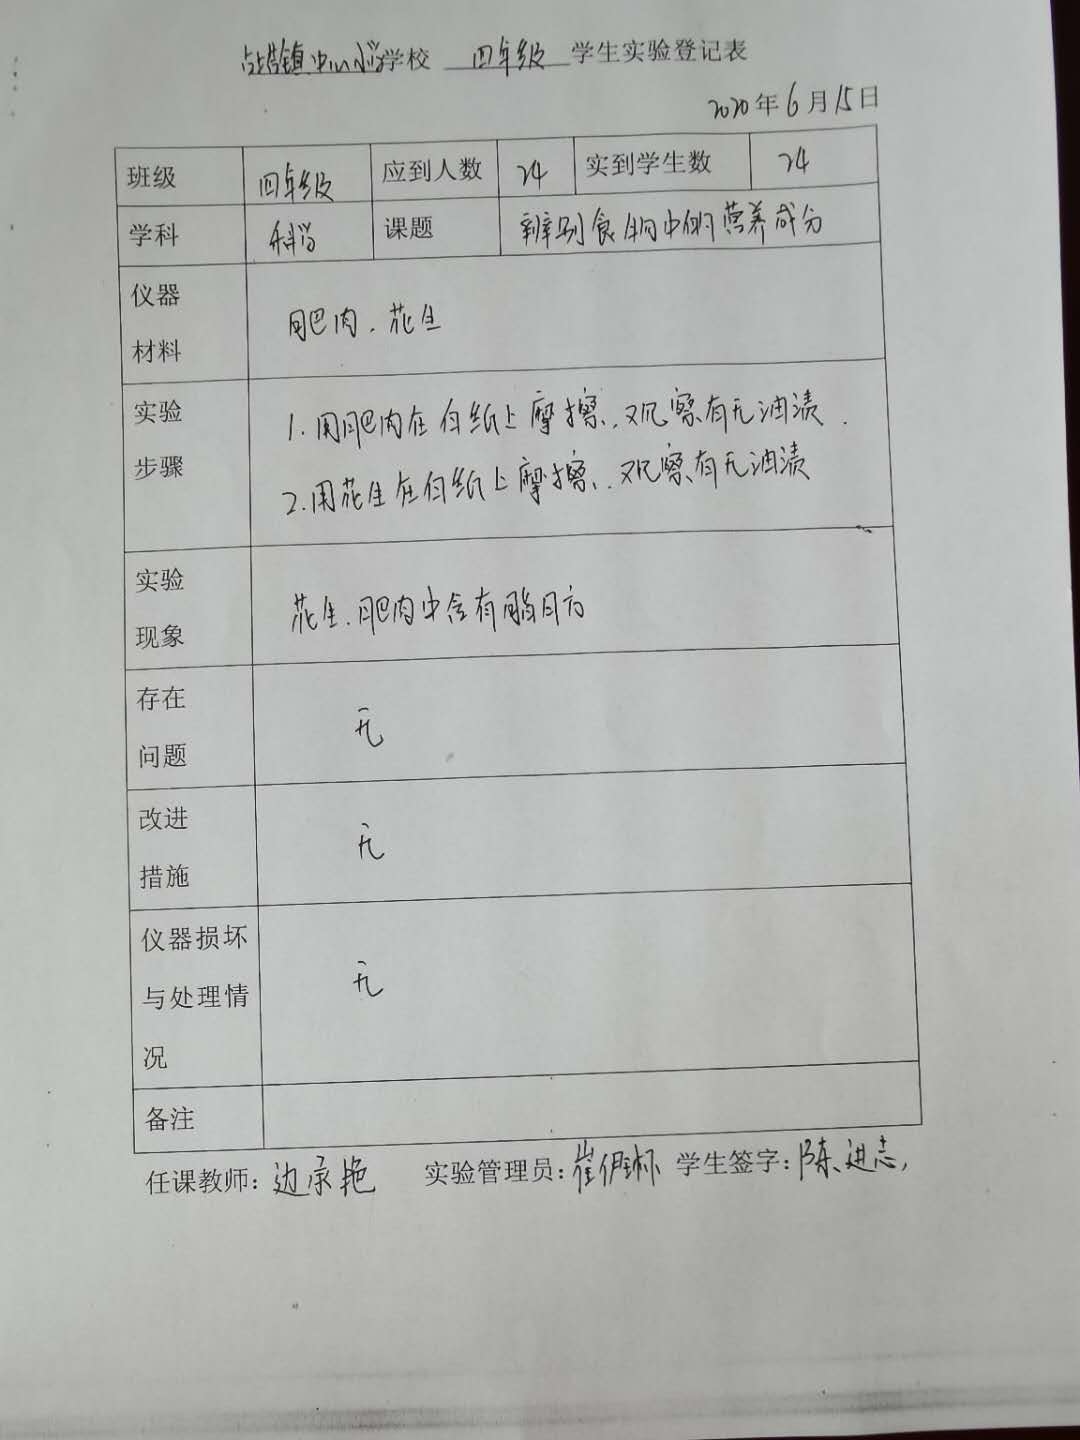 镇中心小学学校 四年级 学生实验登记表
2020年6月15日
班级 四年级 应到人数 24 实到学生数 24
学科 科学 课题 辨别食物中的营养成分
仪器
材料
肥肉、花生
实验
步骤
1.用肥肉在白纸上摩擦,观察有无油渍.
2.用花生在白纸上摩擦,观察有无油渍
实验
现象
花生、肥肉中含有脂肪
存在
问题
无
改进
措施
无
仪器损坏
与处理情
况
无
备注
任课教师:边承艳 实验管理员:崔 学生签字:陈进志